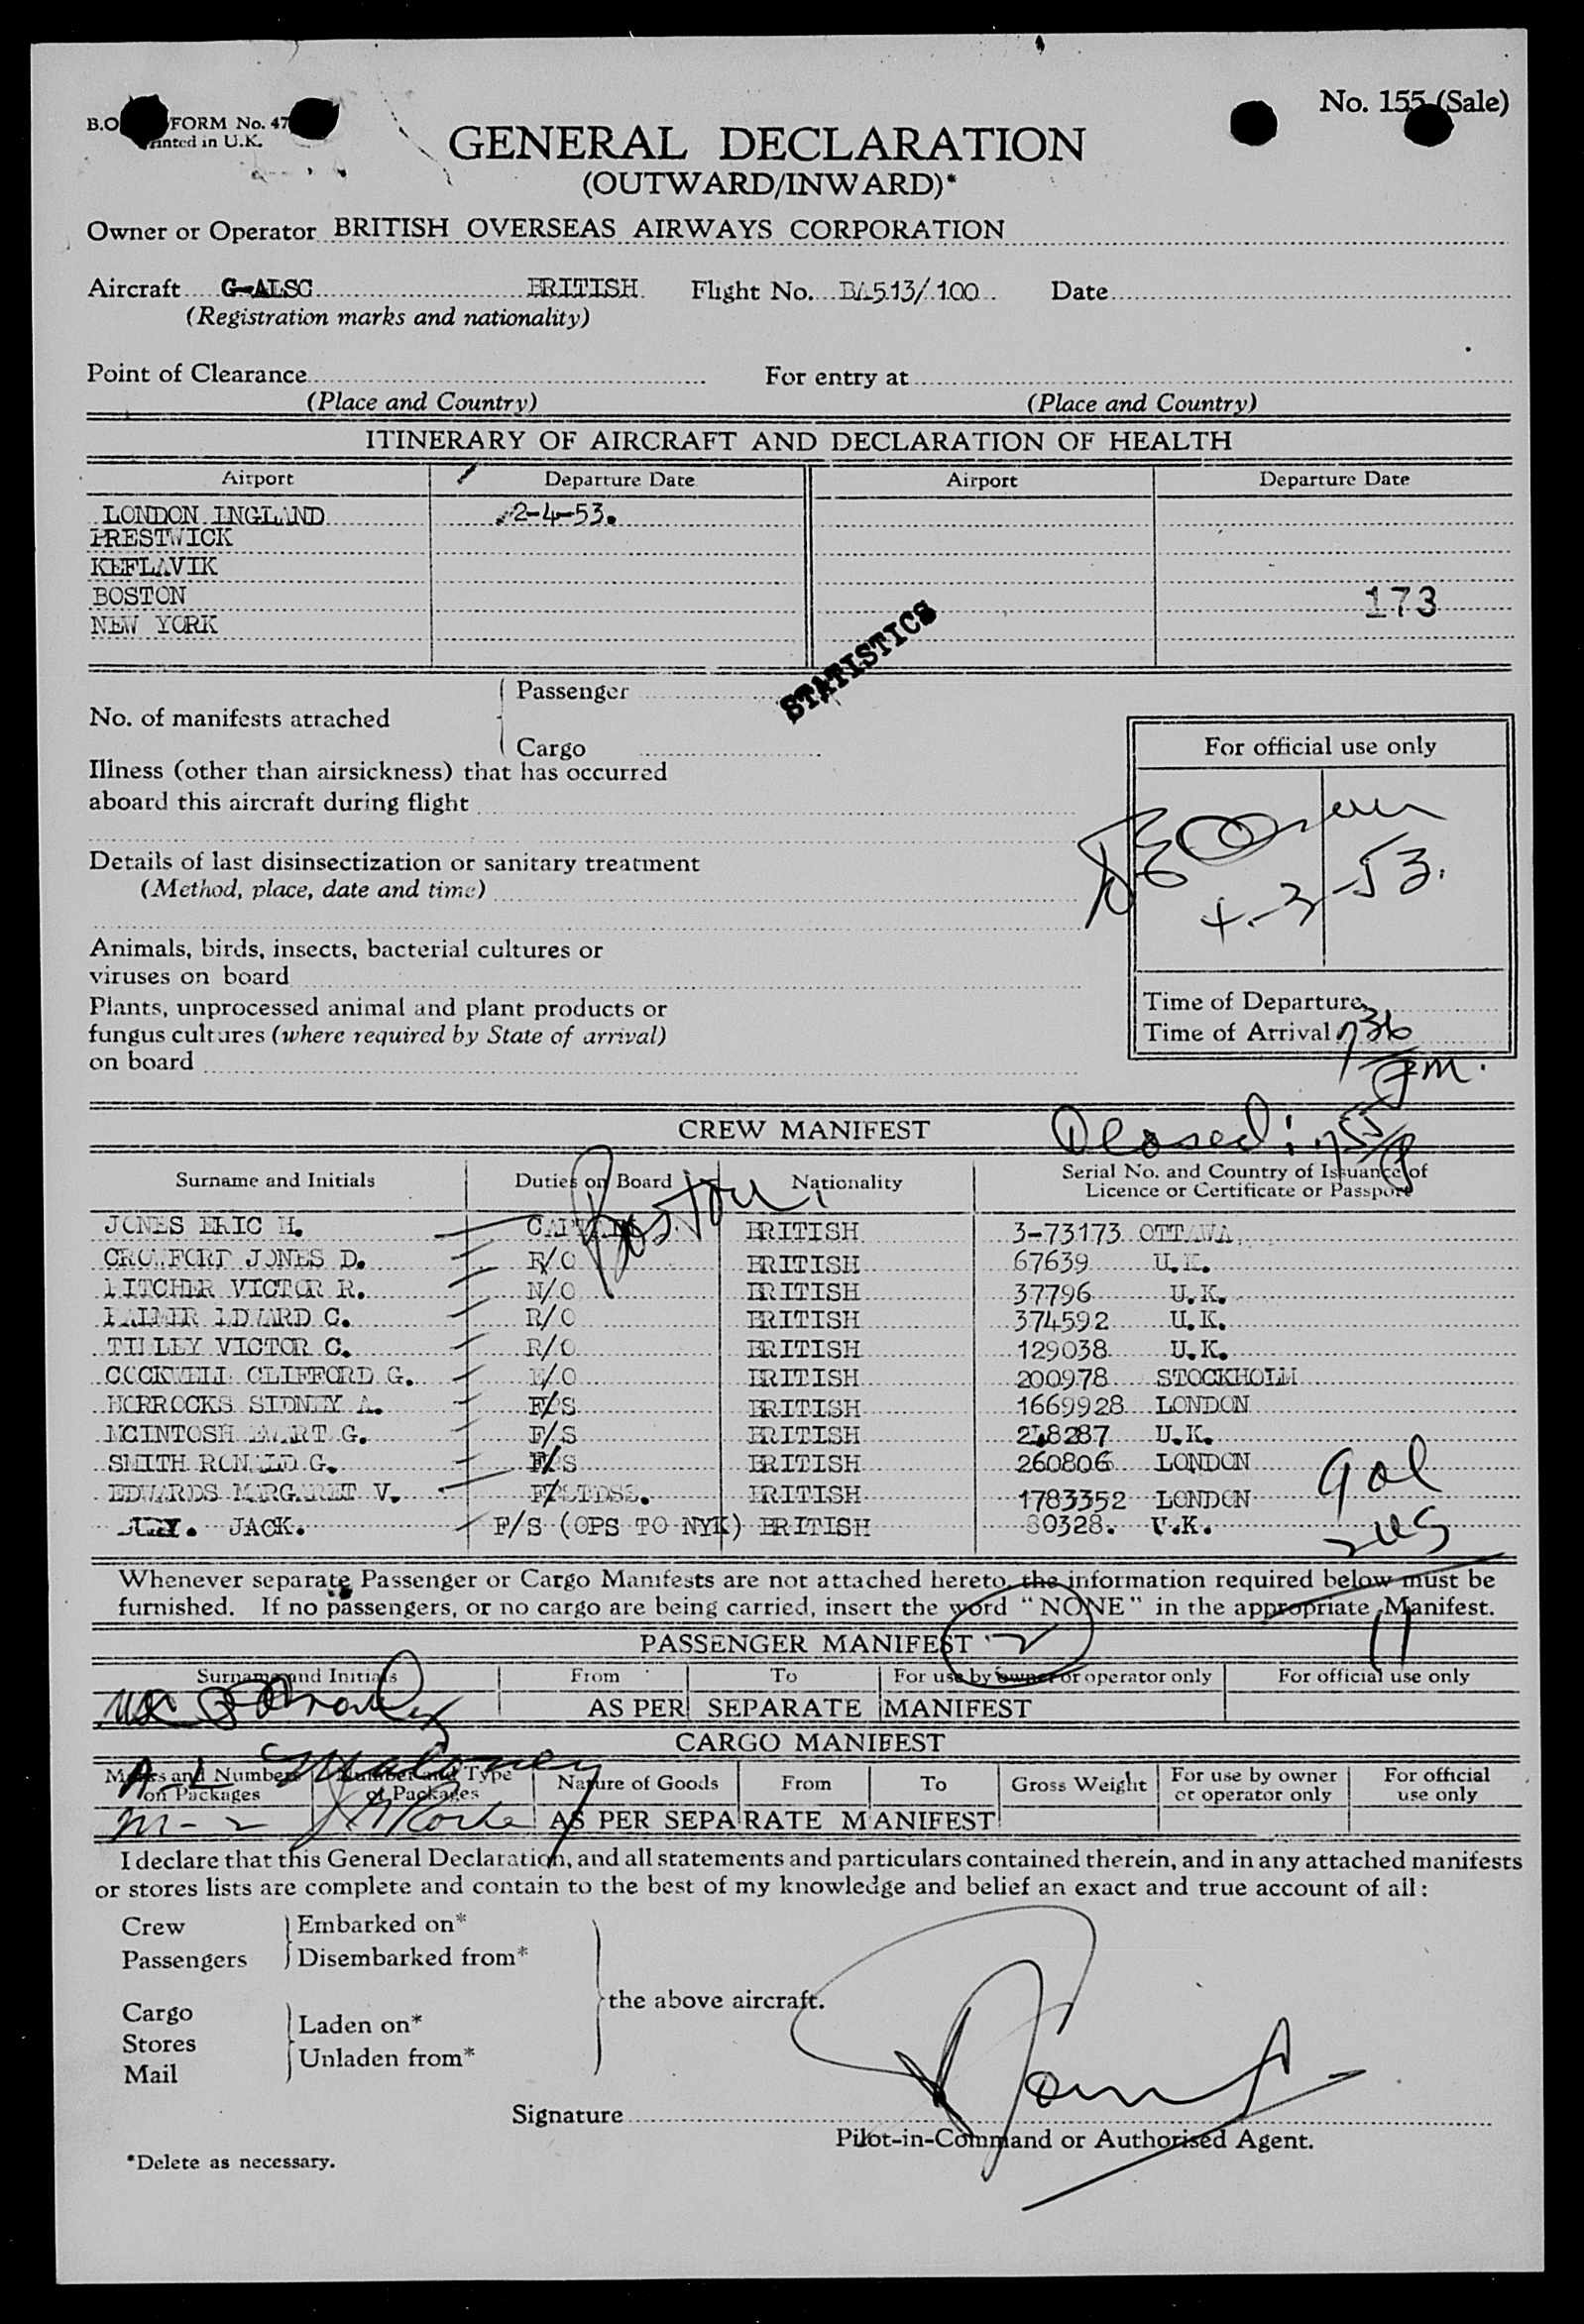 No. 155 (Sale)
FORM No. 47
in U.K.
GENERAL DECLARATION
(OUTWARD/INWARD)*
Owner or Operator BRITISH OVERSEAS AIRWAYS CORPORATION
Aircraft G-ALSC BRITISH Flight No. BA513/100 Date
(Registration marks and nationality)
Point of Clearance For entry at
(Place and Country) (Place and Country)
ITINERARY OF AIRCRAFT AND DECLARATION OF HEALTH
Airport Departure Date Airport Departure Date
LONDON INGLAND 2-4-53.
PRESTWICK
KEFLAVIK
BOSTON 173
NEW YORK
STATISTICS
Passenger
No. of manifests attached
Cargo
For official use only
Illness (other than airsickness) that has occurred
aboard this aircraft during flight
Details of last disinsectization or sanitary treatment
(Method, place, date and time)
4-3-53.
Animals, birds, insects, bacterial cultures or
viruses on board
Plants, unprocessed animal and plant products or
fungus cultures (where required by State of arrival)
on board
Time of Departure
Time of Arrival 736
pm.
CREW MANIFEST
Boston
Surname and Initials Duties on Board Nationality Serial No. and Country of Issuance of
Licence or Certificate or Passport
JONES ERIC H. CAPTAIN BRITISH 3-73173 OTTAWA
CROWFORT JONES D. F/O BRITISH 67639 U.K.
PITCHER VICTOR R. N/O BRITISH 37796 U.K.
EDWARD C. R/O BRITISH 374592 U.K.
TILLEY VICTOR C. R/O BRITISH 129038 U.K.
COCKWELL CLIFFORD G. E/O BRITISH 200978 STOCKHOLM
HORROCKS SIDNEY A. F/S BRITISH 1669928 LONDON
MCINTOSH EWART G. F/S BRITISH 248287 U.K.
SMITH RONALD G. F/S BRITISH 260806 LONDON
EDWARDS MARGARET V. F/STDSS. BRITISH 1783352 LONDON
JACK. F/S (OPS TO NYK) BRITISH 80328. U.K.
Whenever separate Passenger or Cargo Manifests are not attached hereto, the information required below must be
furnished. If no passengers, or no cargo are being carried, insert the word "NONE" in the appropriate Manifest.
PASSENGER MANIFEST 2 11
Surname and Initials From To For use by owner or operator only For official use only
AS PER SEPARATE MANIFEST
CARGO MANIFEST
A. L. Maloney
Marks and Numbers on Packages Number and Type of Packages Nature of Goods From To Gross Weight For use by owner or operator only For official use only
AS PER SEPARATE MANIFEST
I declare that this General Declaration, and all statements and particulars contained therein, and in any attached manifests
or stores lists are complete and contain to the best of my knowledge and belief an exact and true account of all:
Crew Embarked on*
Passengers Disembarked from*
the above aircraft.
Cargo Laden on*
Stores
Unladen from*
Mail
Signature
Pilot-in-Command or Authorised Agent.
*Delete as necessary.